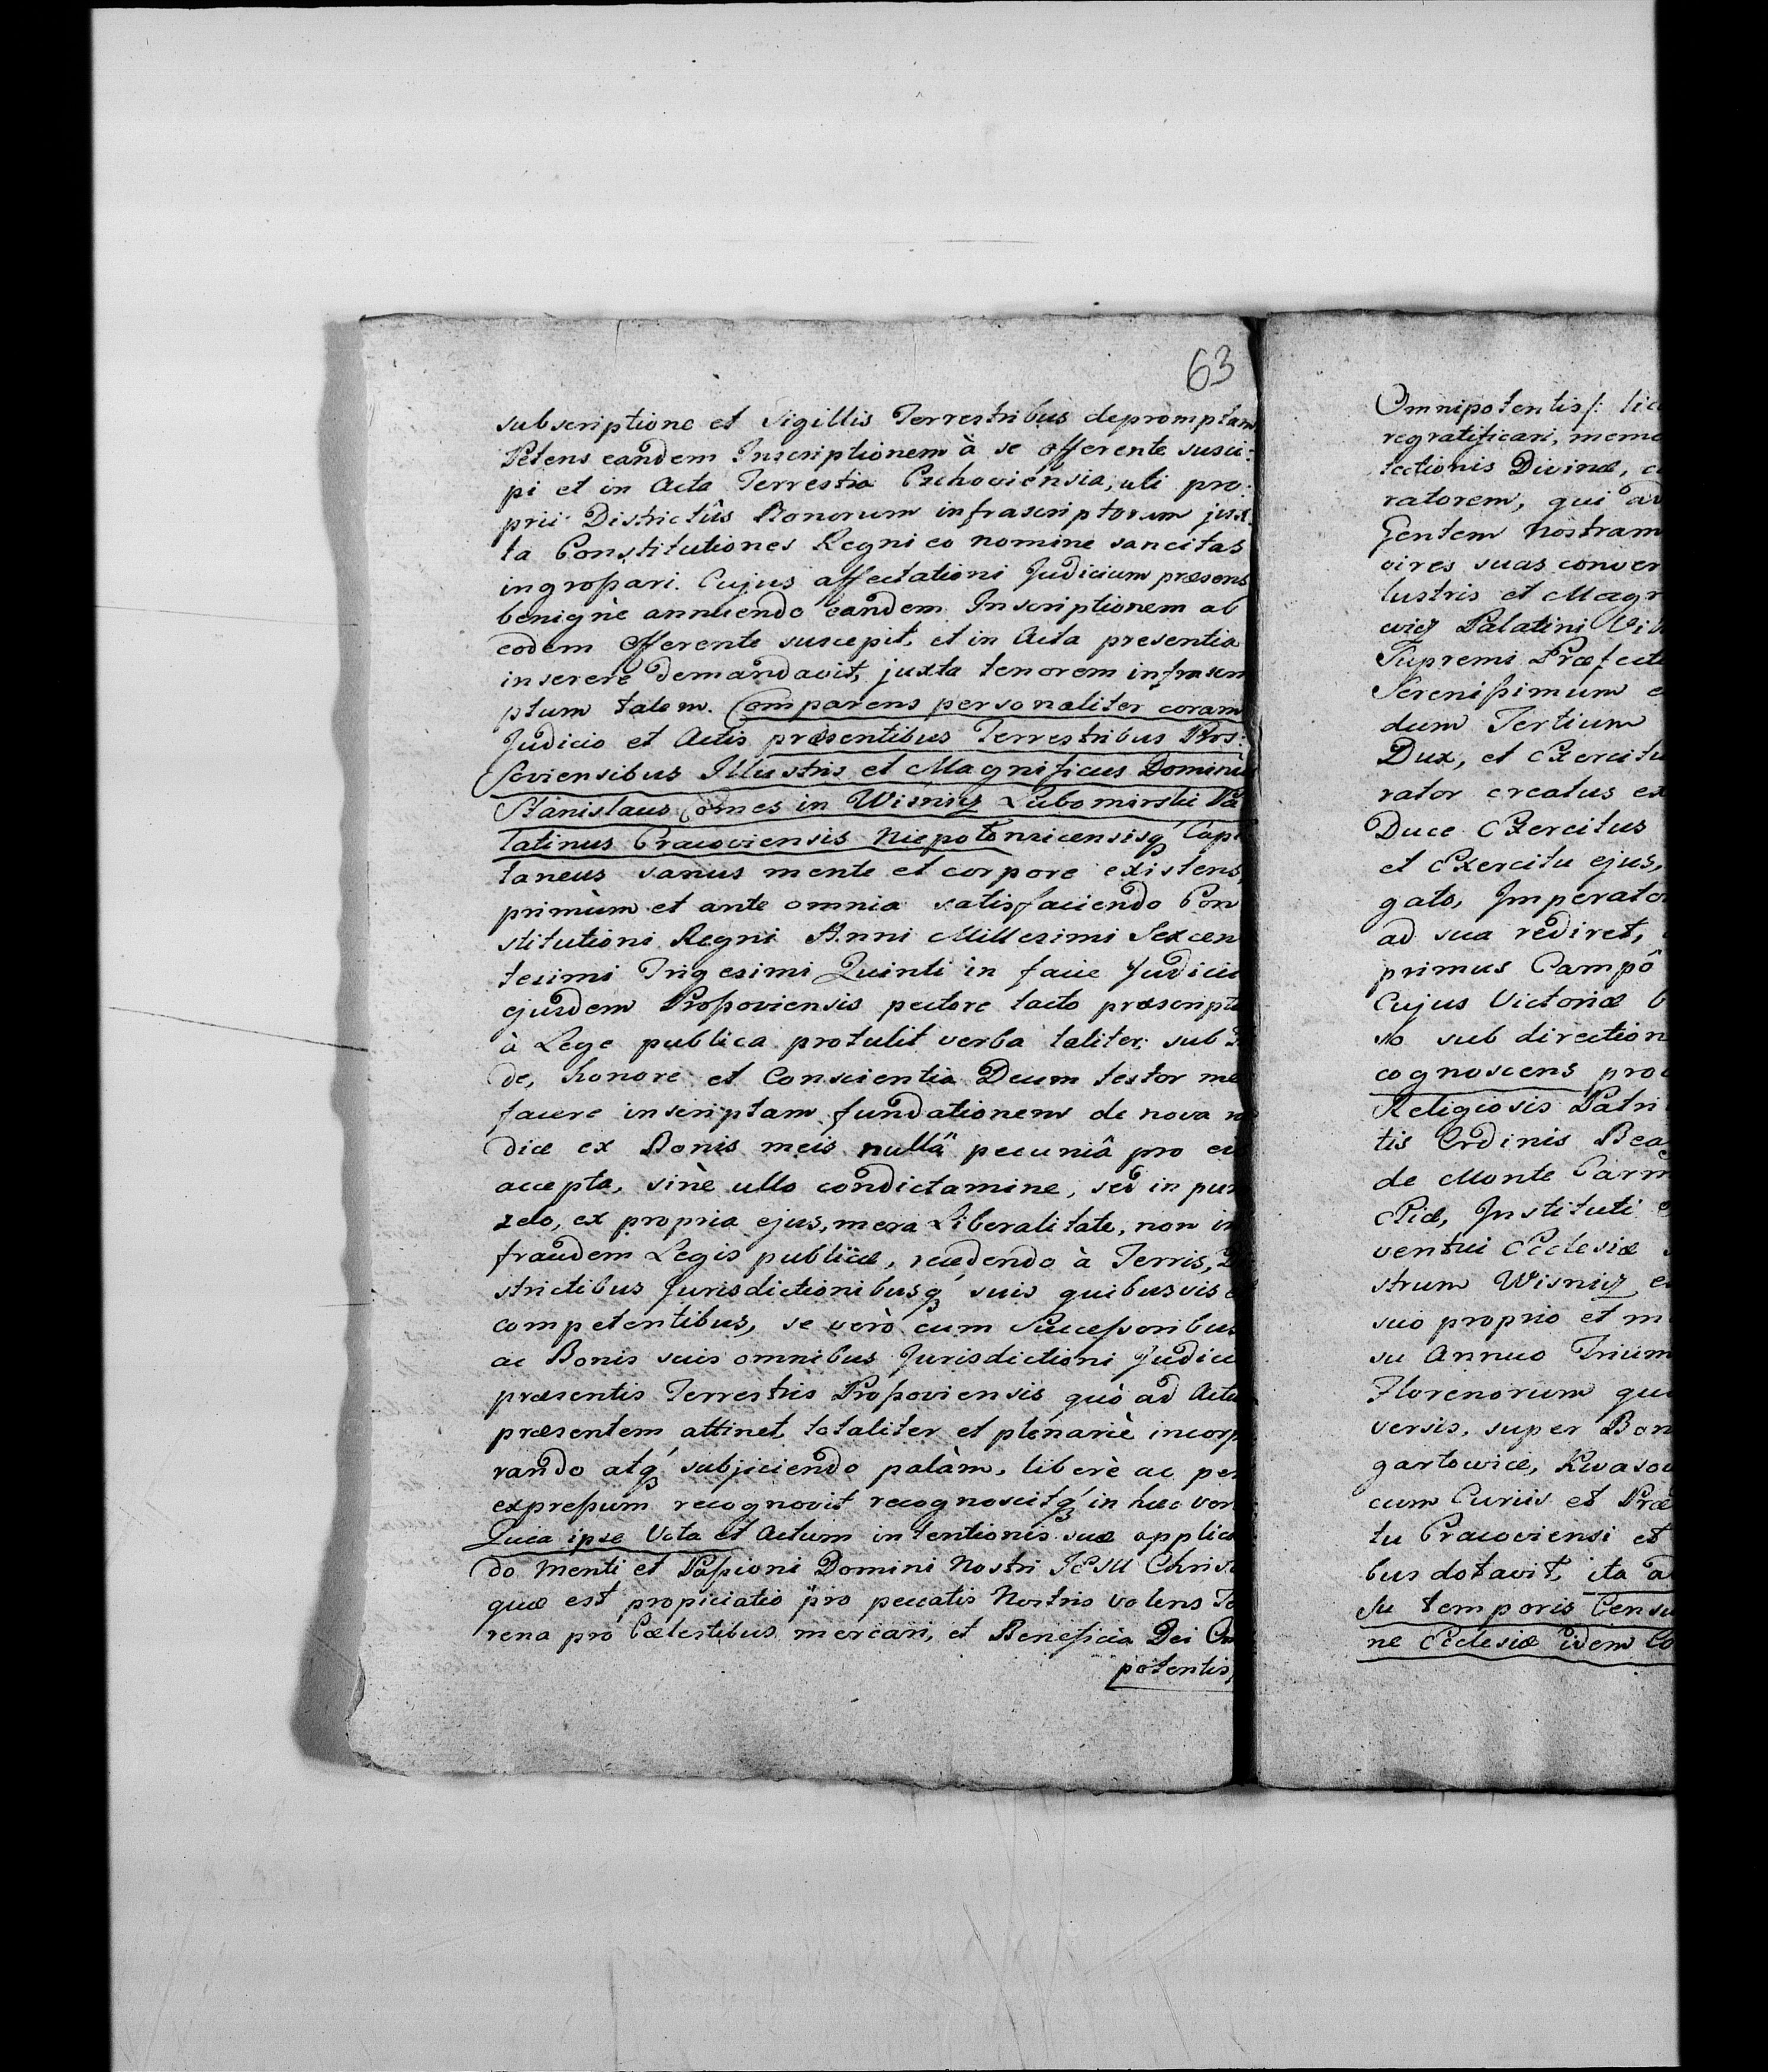 63
subscriptione et Sigillis Terrestribus depromptam
Petens eandem Inscriptionem à se offerente susci:
pi et in Acta Terrestria Czchoviensia, uti pro:
prii Districtûs Bonorum infrascriptorum jux:
ta Constitutiones Regni eo nomine sancitas
ingrossari. Cujus affectationi Judicium præsens
benignè annuendo eandem Inscriptionem ab
eodem offerente suscepit, et in Acta presentia
inserere demandavit, juxta tenorem infrascri
ptum talem. Comparens personaliter coram
Judicio et Actis præsentibus Terrestribus Pros:
soviensibus Illustris et Magnificus Dominus
Stanislaus Comes in Wisnicz Lubomirski Pa
latinus Cracoviensis Niepolomicensisq́ Capi
taneus sanus mente et corpore existens,
primùm et ante omnia satisfaciendo Con
stitutioni Regni Anni Millesimi Sexcen
tesimi Trigesimi Quinti in facie Judicii
ejusdem Prossoviensis pectore tacto præscripta
à Lege publica protulit verba taliter: sub
de, honore et Conscientia Deum testor me
facere inscriptam fundationem de nova
dice ex Bonis meis nullâ pecuniâ pro
accepta, sinè ullo condictamine, sed in pur
zelo, ex propria ejus, mera Liberalitate, non in
fraudem Legis publicæ, recedendo à Terris,
strictibus Jurisdictionibusq́ suis quibusvis
competentibus, se verò cum Successoribus
ac Bonis suis omnibus Jurisdictioni Judicii
præsentis Terrestris Prossoviensis quò ad Actu
præsentem attinet totaliter et plenariè incorp
rando atq́ subjiciendo palàm, liberè ac per
expressum recognovit recognoscitq́ in hæc ver
Quia ipse Vota et Actum intentionis suæ applica
do Menti et Passioni Domini Nostri JESU Chris
quæ est propiciatio pro peccatis Nostris volens Te
rena pro Cælestibus mercari, et Beneficia Dei Om
potentis
Omnipotentis/: lic
regratificari, memo
tectionis Divinæ,
ratorem, qui ad
Gentem Nostram
vires suas conver
lustris et Magn
wicz Palatini Vil
Supremi Præfect
Serenissimum
dum Tertium
Dux, et Exercitu
rator creatus ex
Duce Exercitus
et Exercitu ejus,
gato, Imperator
ad sua rediret,
primus Campô
Cujus Victoriæ
so sub direction
cognoscens pro
Religiosis Patri
tis Ordinis Bea
de Monte Carm
Ecclesiæ
strum Wisnicz
suo proprio et m
su Annuo Trium
Florenorum
versis, super Bon
gartowice, Kwaso
cum Curiis et Præ
tu Cracoviensi et
bus dotavit, ita
su temporis Censu
ne Ecclesiæ idem Co